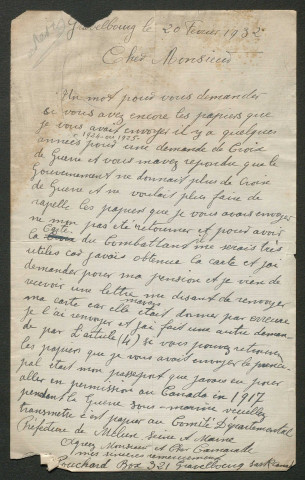 Gravelbourg le 20 Fevrier 1932
Cher Monsieur
Un mot pour vous demander
si vous avez encore les papiers que
je vous avait envoyer il y a quelques
1924-ou 1925
années pour une demande de Croix
de Guerre et vous mavez repondu que le
Gouvernement ne donnait plus de Croix
de Guerre et ne voulait plus faire de
rapelle les papiers que je vous avais envoyer
ne mon pas ete retourner et pour avoir
Carte
la Croix du combattant me serais très
utiles car javais obtenu la carte et jai
demander pour ma pension et je vien de
recevoir une lettre me disant de renvoyer
ma carte car elle etait donner par erreure
je l'ai renvoyer et jai fait une autre deman-
de par L'article (4) si vous pouvez retrouver
les papiers que je vous avait envoyer le princi-
pal etait mon passeport que javais eu pour
aller en permission au Canada en 1917
pendant la Guerre veuillez
transmetre c'est papier au Comite Départemental
Préfecture de Melun Seine et Marne
Agreez Monsieur et Cher Camarade
mes sinceres remerciements
Bouchard Box 321 Gravelbourg Sask Canada